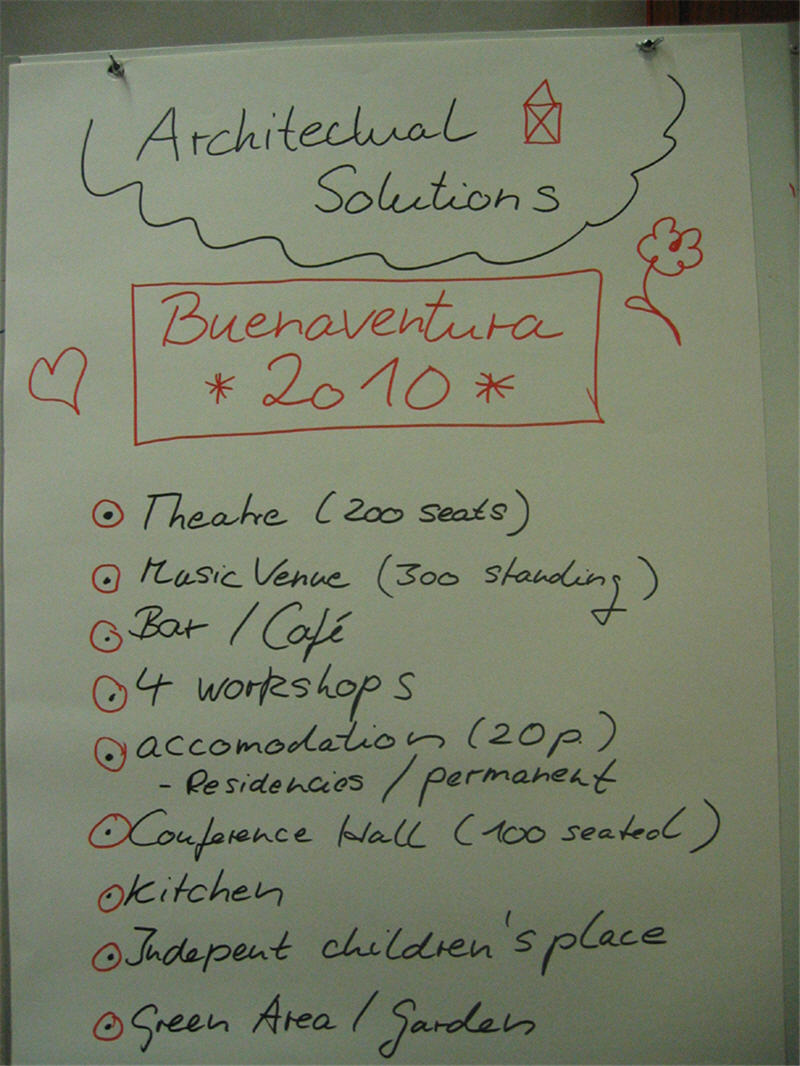 Architectual
Solutions
Buenaventura
* 2010 *
Theatre (200 seats)
Music Venue (300 standing)
Bar / Café
4 workshops
accomodation (20p.)
- Residencies / permanent
Conference Hall (100 seated)
Kitchen
Indepent children's place
Green Area / Garden